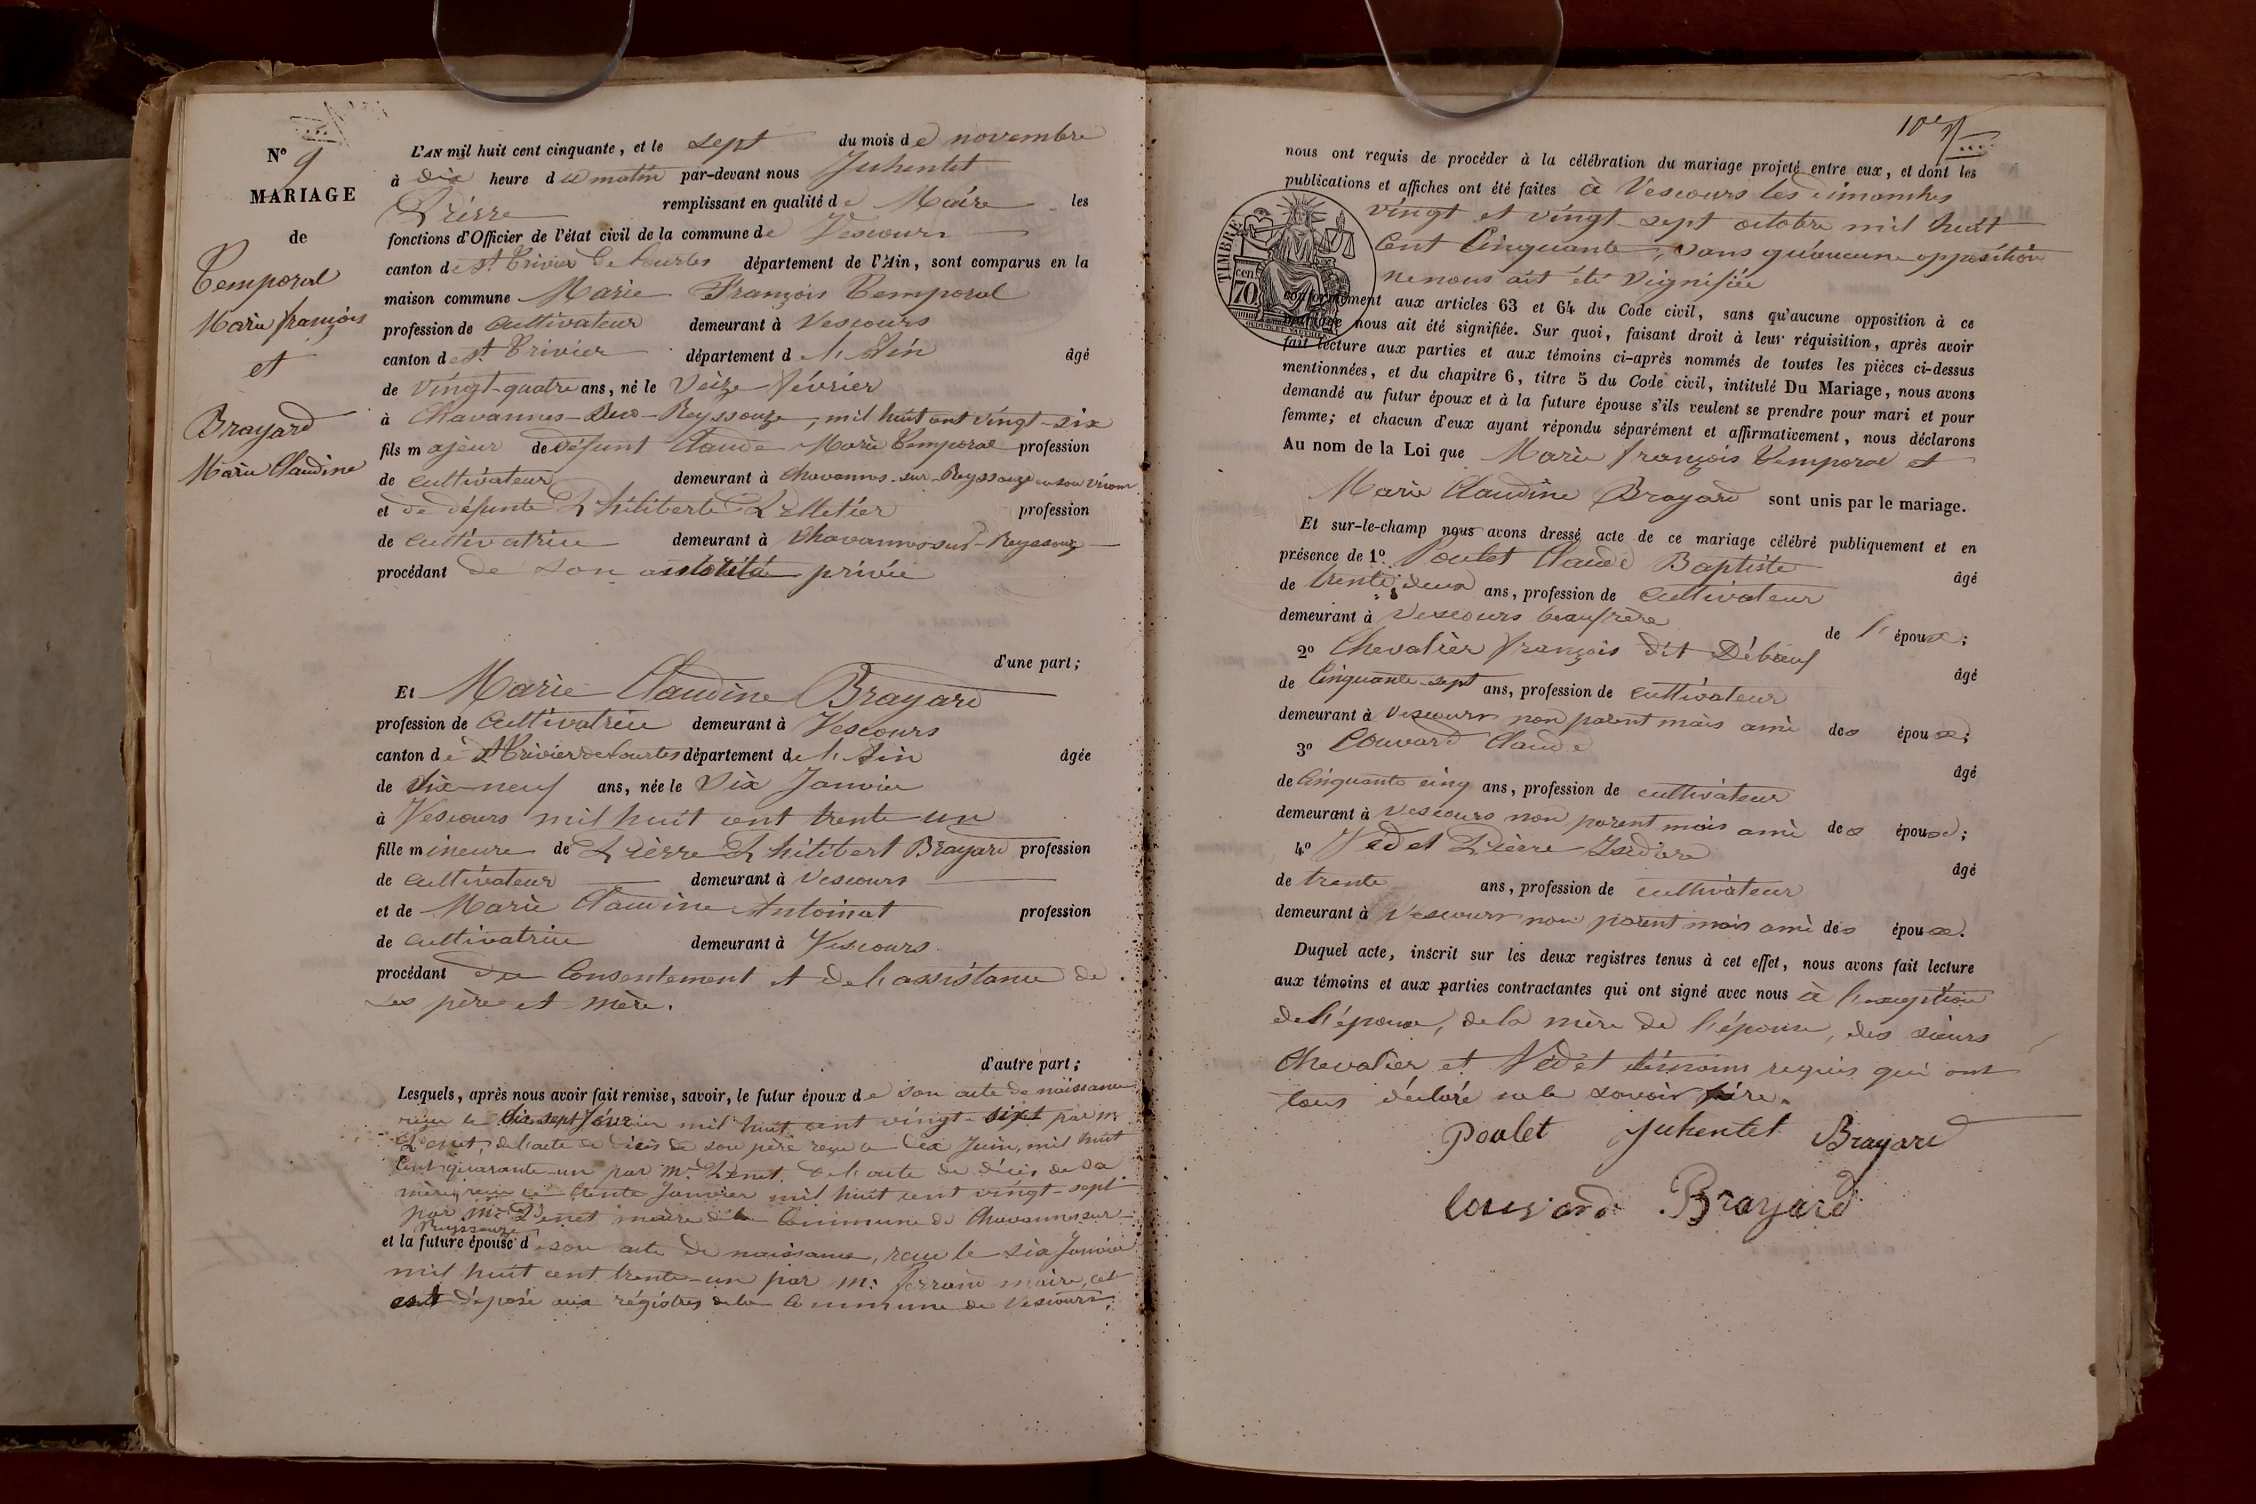 N° 9
MARIAGE
de
Temporal
Marie françois
et
Brayard
Marie Claudine
L'AN mil huit cent cinquante, et le sept du mois de novembre
à dix heure du matin par-devant nous Juhentet
Pierre remplissant en qualité de Maire les
fonctions d'Officier de l'état civil de la commune de Vescours
canton de St Trivier de Courtes département de l'Ain, sont comparus en la
maison commune Marie François Temporal
profession de cultivateur demeurant à Vescours
canton de St Trivier département de l'Ain âgé
de vingt-quatre ans, né le seize février
à Chavannes-sur-Reyssouze, mil huit cent vingt-six
fils majeur de défunt Claude Marie Temporal profession
de cultivateur demeurant à Chavannes-sur-Reyssouze en son vivant
et de défunte Philiberte Pelletier profession
de cultivatrice demeurant à Chavannes sur-Reyssouze
procédant de son autorité privée
d'une part;
Et Marie Claudine Brayard
profession de cultivatrice demeurant à Vescours
canton de St Trivier de Courtes département de l'Ain âgée
de dix-neuf ans, née le six Janvier
à Vescours mil huit cent trente un
fille mineure de Pierre Philibert Brayard profession
de cultivateur demeurant à Vescours
et de Marie Claudine Antoinat profession
de cultivatrice demeurant à Vescours
procédant du Consentement et de l'assistance de
ses père et mère.
d'autre part;
Lesquels, après nous avoir fait remise, savoir, le futur époux de son acte de naissance
reçu le dix sept février mil huit cent vingt-six par mr
Penet, de l'acte de décès de son père reçu le dix Juin, mil huit
cent quarante-un par Mr Penet, de l'acte de décès de sa
mère, reçu le trente Janvier mil huit cent vingt-sept
par Mr Penet maire de la Commune de Chavannes sur
Reyssouze
et la future épouse de son acte de naissance, reçu le six Janvier
mil huit cent trente-un par m: ferrand maire, cet
acte déposé aux régistres de la Commune de Vescours;
10
nous ont requis de procéder à la célébration du mariage projeté entre eux, et dont les
publications et affiches ont été faites à Vescours les dimanches
vingt et vingt-sept octobre mil huit
Cent Cinquante, sans qu'aucune opposition
ne nous ait été signifiée
TIMBRE
70 cen
conformément aux articles 63 et 64 du Code civil, sans qu'aucune opposition à ce
mariage nous ait été signifiée. Sur quoi, faisant droit à leur réquisition, après avoir
fait lecture aux parties et aux témoins ci-après nommés de toutes les pièces ci-dessus
mentionnées, et du chapitre 6, titre 5 du Code civil, intitulé Du Mariage, nous avons
demandé au futur époux et à la future épouse s'ils veulent se prendre pour mari et pour
femme; et chacun d'eux ayant répondu séparément et affirmativement, nous déclarons
Au nom de la Loi que Marie françois Temporal et
Marie Claudine Brayard sont unis par le mariage.
Et sur-le-champ nous avons dressé acte de ce mariage célébré publiquement et en
présence de 1° Poulet Claude Baptiste âgé
de trente deux ans, profession de cultivateur
demeurant à Vescours beaufrère de l' époux;
2° Chevalier françois dit Débœuf âgé
de cinquante-sept ans, profession de cultivateur
demeurant à Vescours non parent mais ami des époux;
3° Couvard Claude âgé
de Cinquante cinq ans, profession de cultivateur
demeurant à Vescours non parent mais ami des époux;
4° Védet Pierre Isidore âgé
de trente ans, profession de cultivateur
demeurant à Vescours non parent mais ami des époux.
Duquel acte, inscrit sur les deux registres tenus à cet effet, nous avons fait lecture
aux témoins et aux parties contractantes qui ont signé avec nous à l'exception
de l'époux, de la mère de l'épouse, des sieurs
Chevalier et Védet témoins requis qui ont
tous déclaré ne le savoir faire.
Poulet Juhentet Brayard
Couvard Brayard